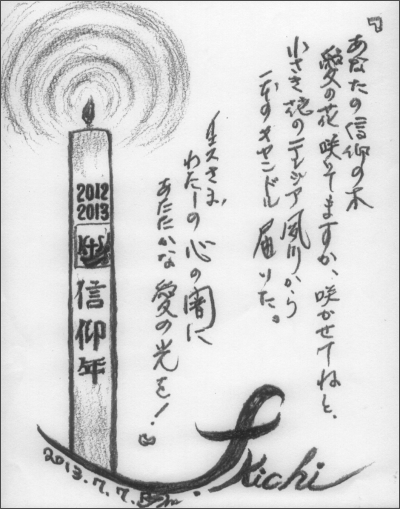 『
あなたの信仰の木
愛の花 咲いてますか、咲かせてねと、
小さき花のテレジア 夙川から
一本のキャンドル 届いた。
イエスさま、
わたしの心の闇に
あたたかな 愛の光を！
』
2012
2013
信仰年
2013.7.7.
Kichi